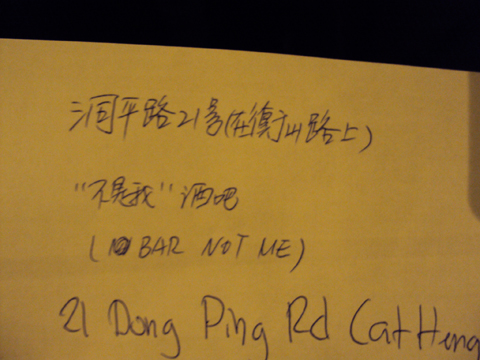 洞平路21号(在衡山路上)
"不是我"酒吧
(BAR NOT ME)
21 Dong Ping Rd (at Heng